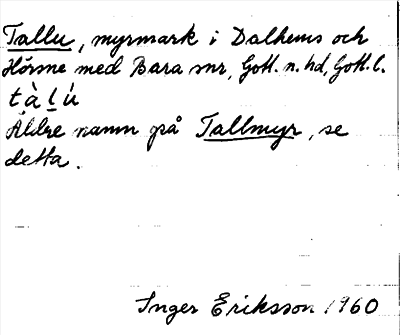 Tallu, myrmark i Dalhems och
Hörsne med Bara snr, Gotl. n. hd, Gotl. l.
t̀àl̠ú
Äldre namn på Tallmyr, se
detta.
Inger Eriksson 1960